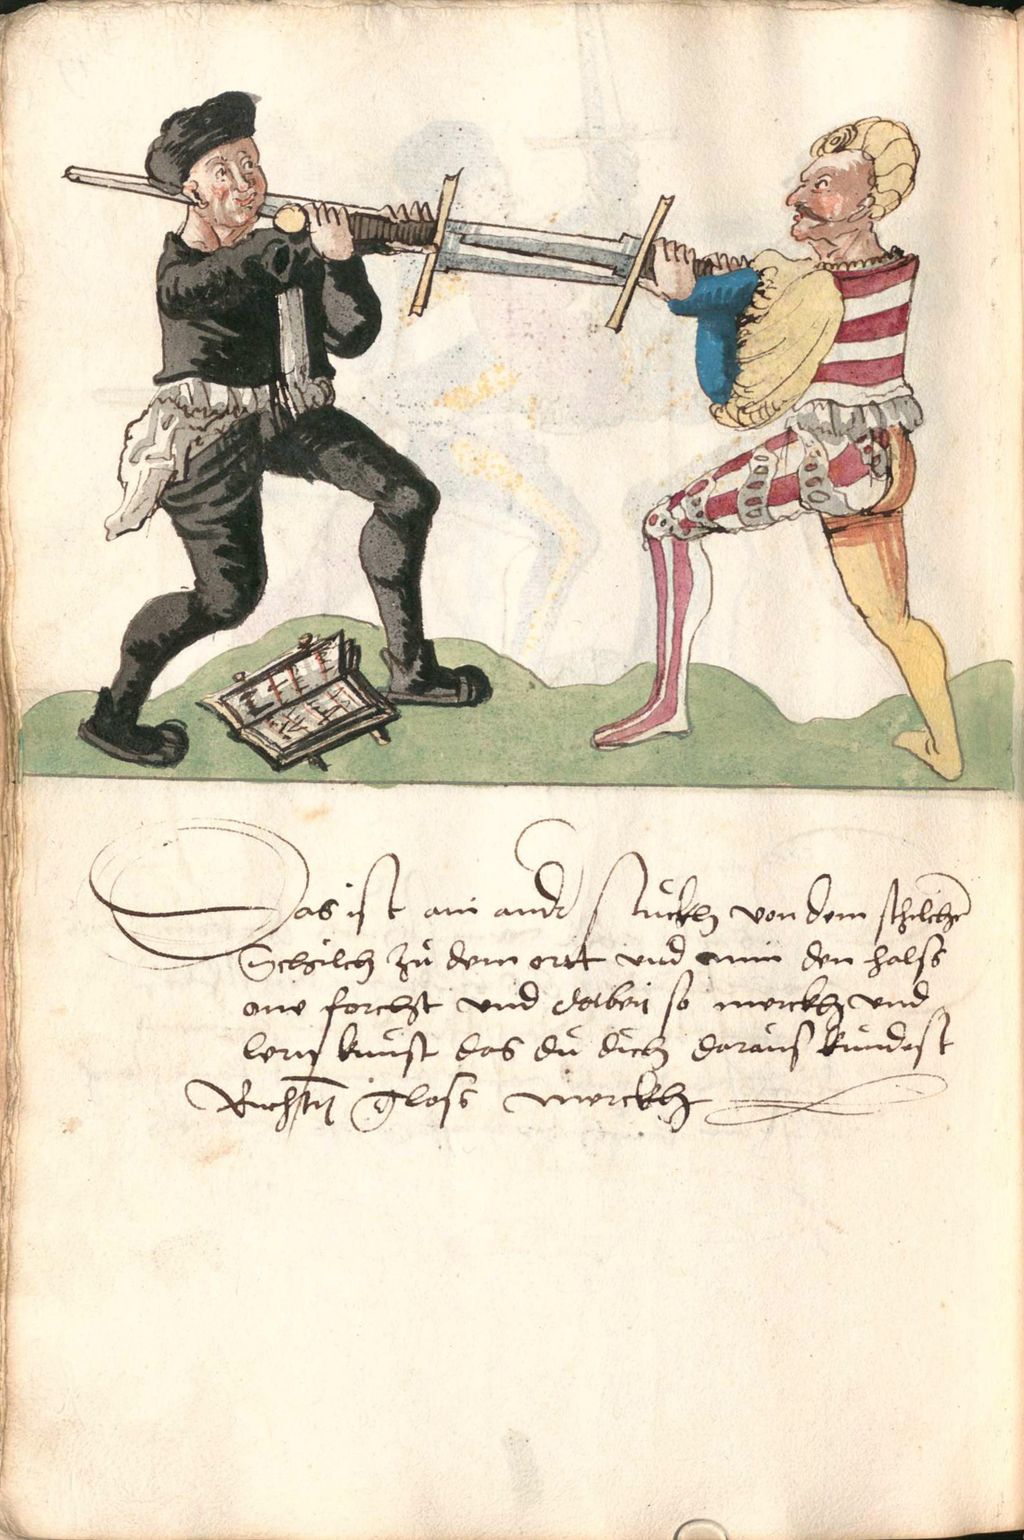 Das ist ain ander stuckh von dem schilcher
Schilch zů dem ortt und nim den halss
one forcht und dorbeÿ so merckh und
lern kunst das dů dich daraus kundest
Richtn gloss merckh